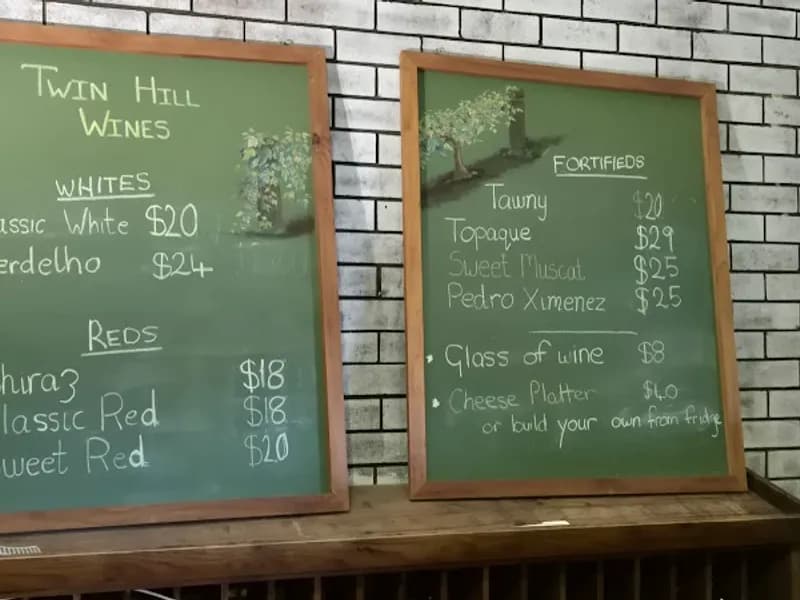 TWIN HILL
WINES
WHITES
assic White $20
erdelho $24
REDS
hiraz $18
lassic Red $18
weet Red $20
FORTIFIEDS
Tawny $20
Topaque $29
Sweet Muscat $25
Pedro Ximenez $25
Glass of wine $8
Cheese Platter $40
or build your own from fridge